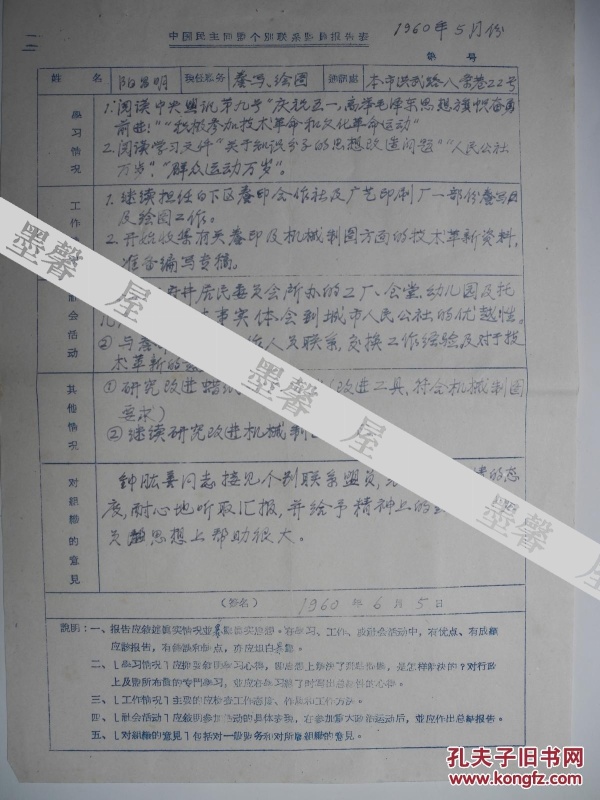 中国民主同盟个别联系盟员报告表
1960年5月份
第 号
姓 名 阳昌明 现任职务 誊写、绘图 通讯处 本市洪武路八条巷22号
学习情况
1.阅读中央盟讯第九号“庆祝五一,高举毛泽东思想旗帜奋勇
前进!”“积极参加技术革命和文化革命运动”
2.阅读学习文件“关于知识分子的思想改造问题”“人民公社
万岁”、“群众运动万岁”。
工作
1.继续担任白下区誊印合作社及广艺印刷厂一部份誊写
及绘图工作。
2.开始收集有关誊印及机械制图方面的技术革新资料,
准备编写专稿。
会活动
井居民委员会所办的工厂、食堂、幼儿园及托
事实体会到城市人民公社的优越性。
②与 作人员联系,交换工作经验及对于技
术革新的
其他情况
①研究改进蜡纸 (改进工具,符合机械制图
要求)
②继续研究改进机械制
对组织的意见
钟 同志接见个别联系盟员, 的态
度,耐心地听取汇报,并给予精神上的
员 思想上帮助很大。
(签名) 1960年6月5日
说明:一、报告应叙述真实情况并暴露真实思想。在学习、工作、社会活动中,有优点、有成就
应该报告,有错误和缺点,亦应坦白暴露。
二、[学习情况]应扼要叙明学习心得,即思想上解决了那些问题,是怎样解决的?对行政
上及盟所布置的专门学习,并应在学习完了时写出总结性的心得。
三、[工作情况]主要的应检查工作态度、作风和工作方法。
四、[社会活动]应叙明参加活动的具体表现,在参加重大政治运动后,并应作出总结报告。
五、[对组织的意见]包括对一般盟务和对所属组织的意见。
墨馨屋
墨馨屋
墨馨屋
孔夫子旧书网
www.kongfz.com